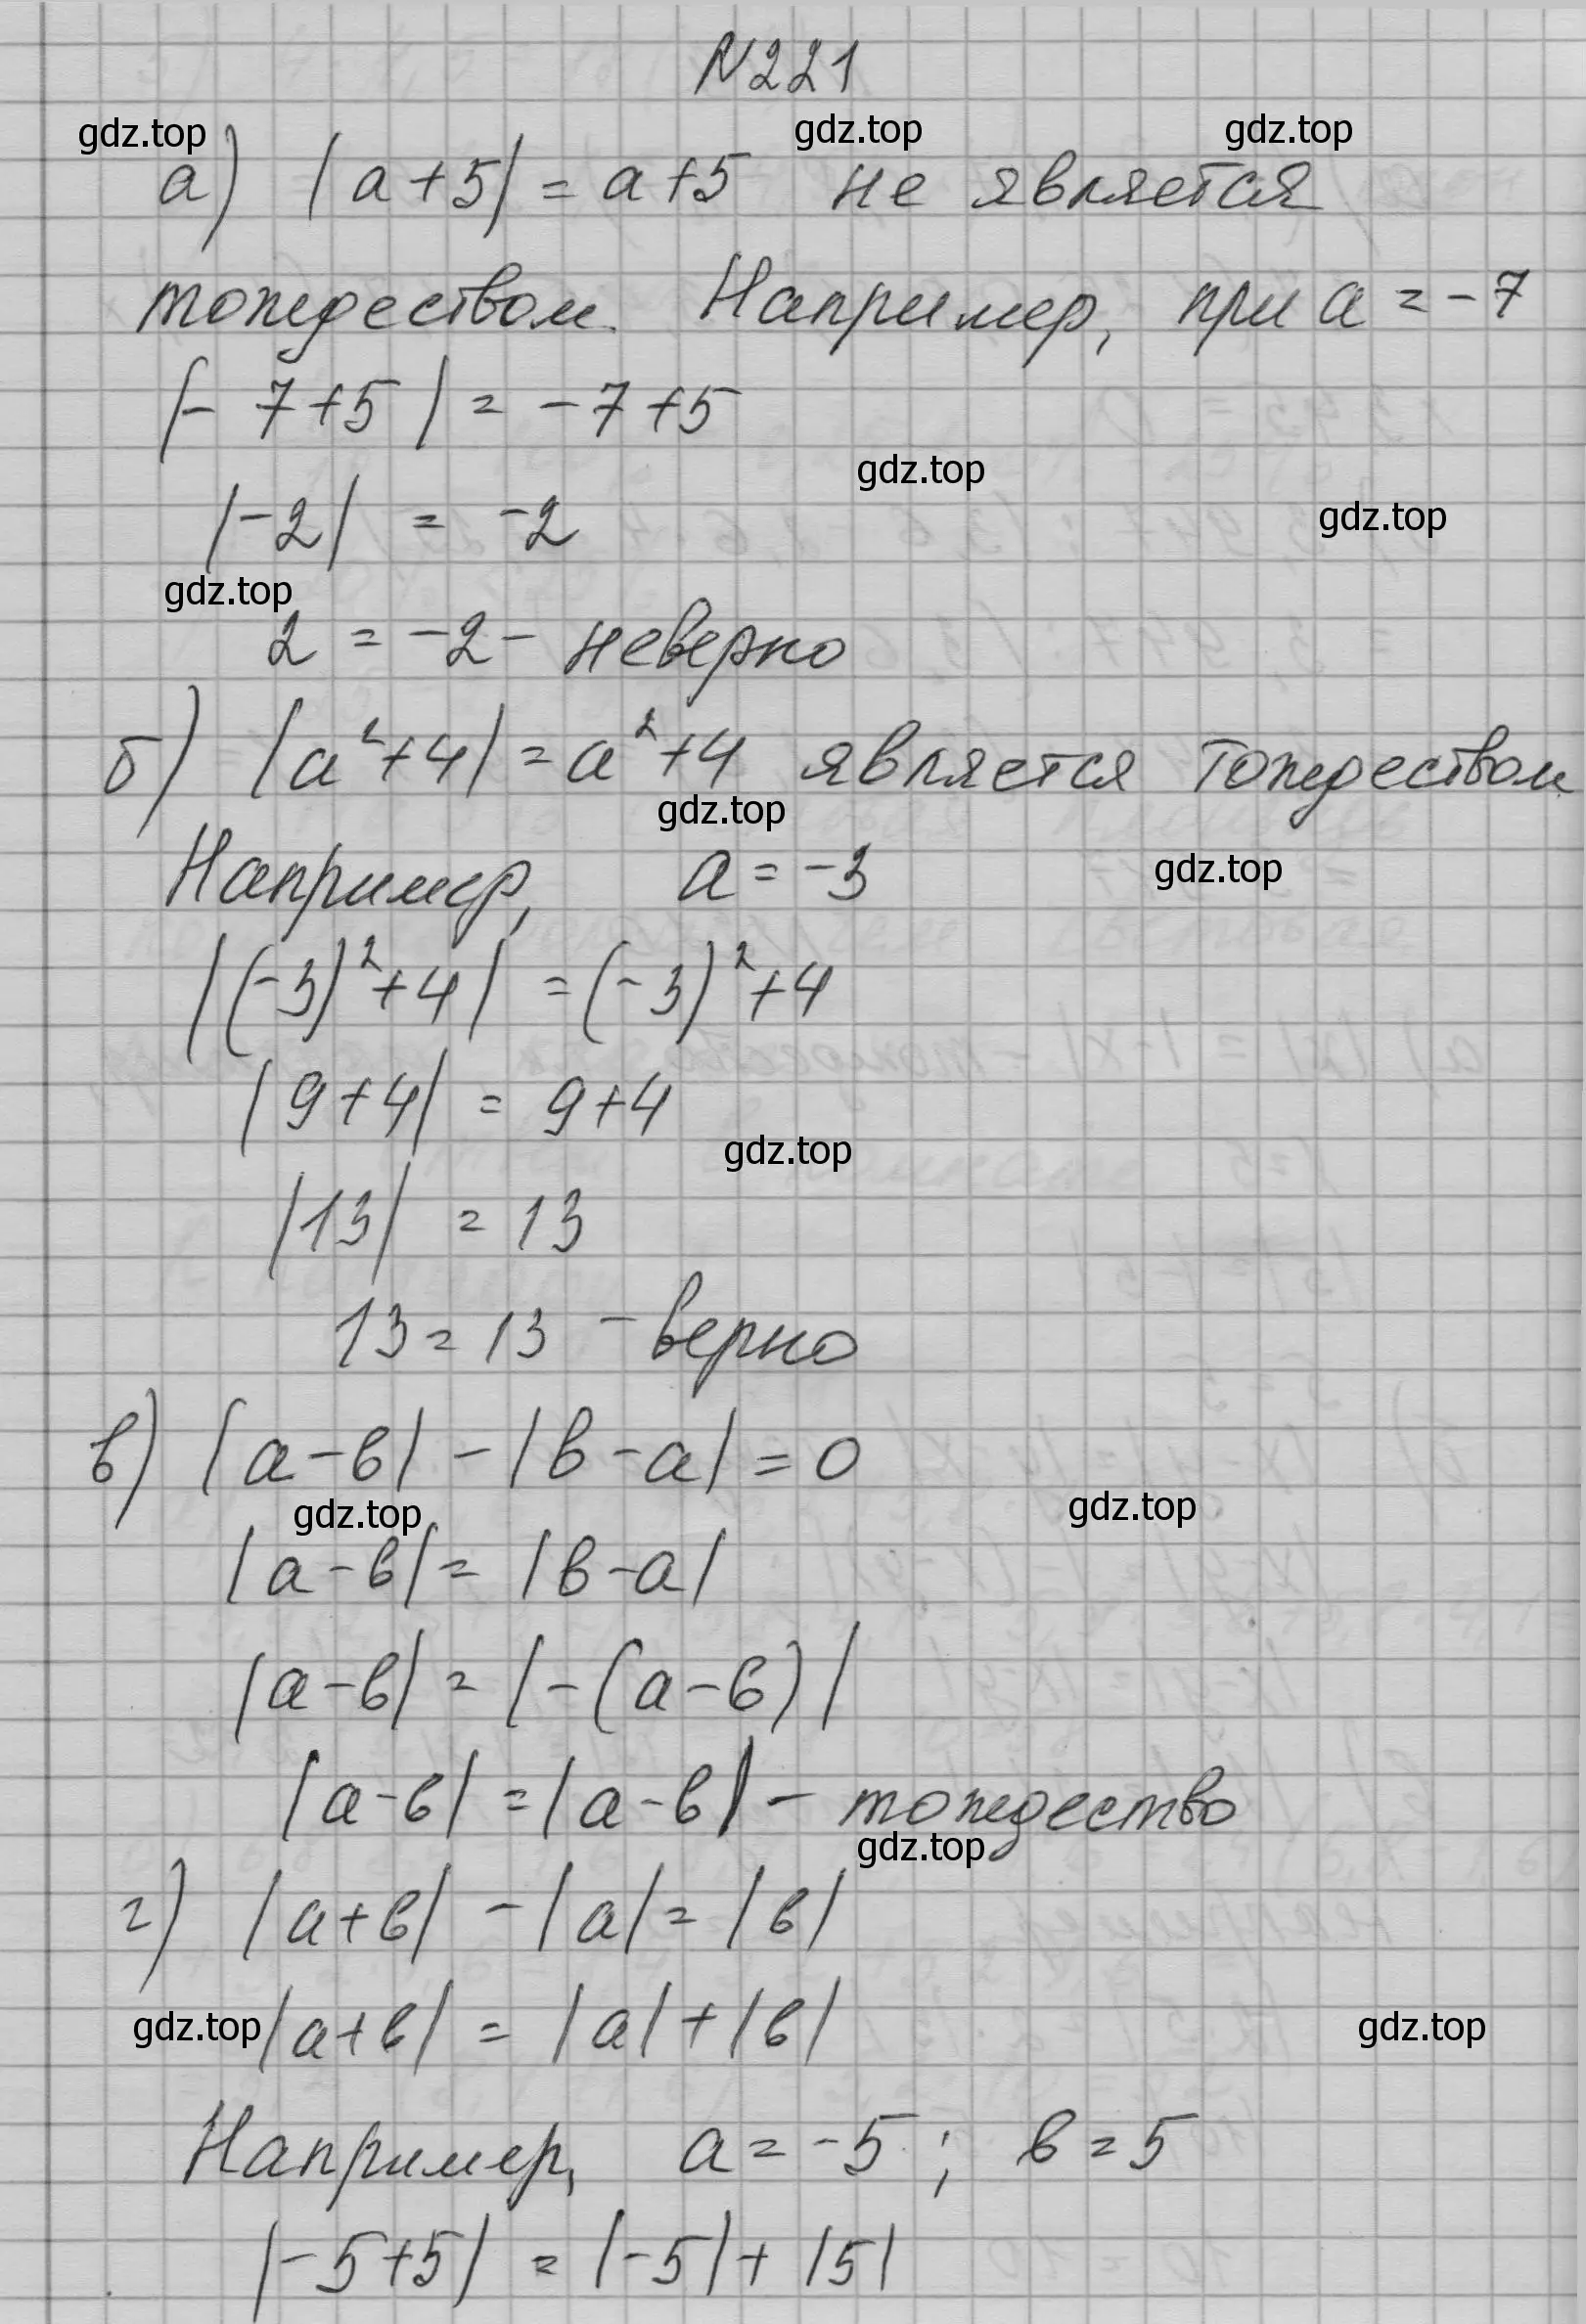 N221
gdz.top gdz.top gdz.top
а) |a+5| = a+5 не является
тождеством. Например, при a = -7
|-7+5| = -7+5
gdz.top
|-2| = -2
gdz.top
gdz.top
2 = -2 - неверно
б) |a²+4| = a²+4 является тождеством
gdz.top
Например, a = -3
gdz.top
|(-3)²+4| = (-3)²+4
|9+4| = 9+4
gdz.top
|13| = 13
13 = 13 - верно
в) |a-в| - |в-a| = 0
gdz.top gdz.top
|a-в| = |в-a|
|a-в| = |-(a-в)|
|a-в| = |a-в| - тождество
gdz.top
г) |a+в| - |a| = |в|
gdz.top |a+в| = |a| + |в| gdz.top
Например, a = -5; в = 5
|-5+5| = |-5| + |5|